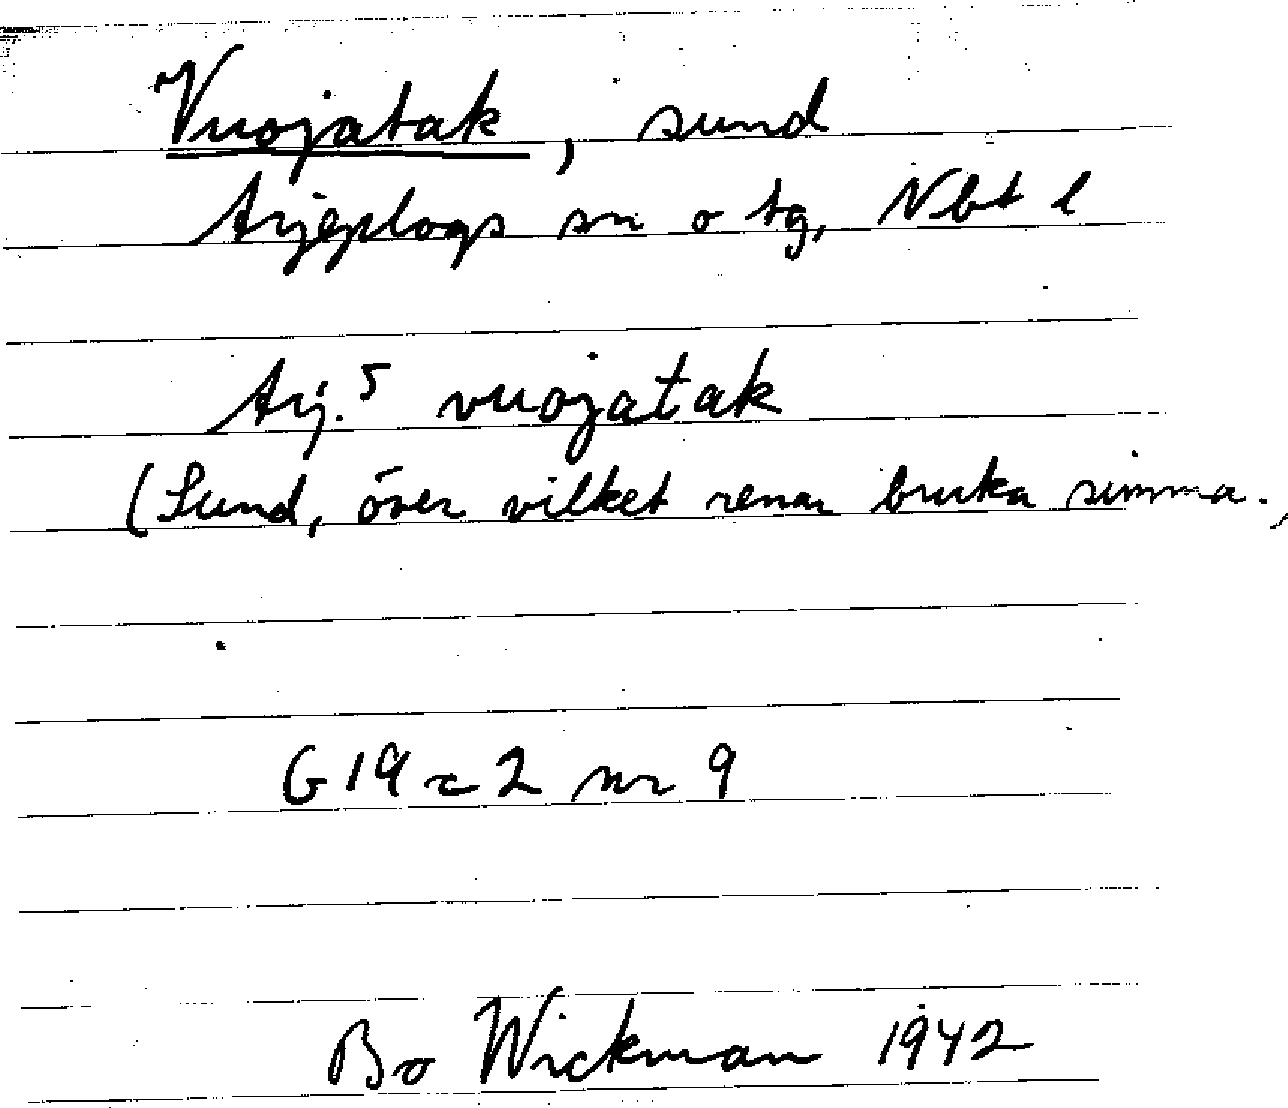 Vuojatak, sund
Arjeplogs sn o tg, Nbt l
Arj.⁵ vuojatak
(Sund, över vilket renar bruka simma.)
G 19 c 2 nr 9
Bo Wickman 1942